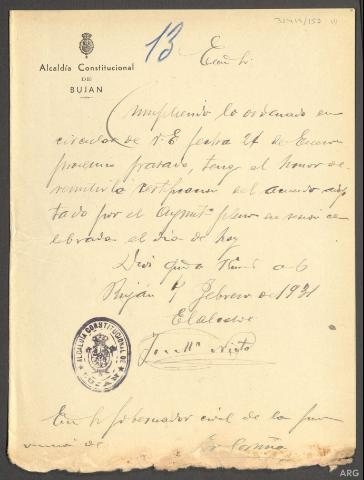 32413/152
13
Alcaldía Constitucional
DE
BUJAN
Excmo Sr.
Cumpliendo lo ordenado en
circular de V.E. fecha 24 de Enero
proximo pasado, tengo el honor de
remitirle certificacion del acuerdo adop
tado por el Ayuntº pleno en sesion ce
lebrada el dia de hoy
Dios gûe a V.E. m. a.
Buján 7 Febrero de 1931
El alcalde
José Mª Nieto
ALCALDÍA CONSTITUCIONAL DE
BUJÁN
Excmo Sr Gobernador civil de la pro
vincia de La Coruña
ARG